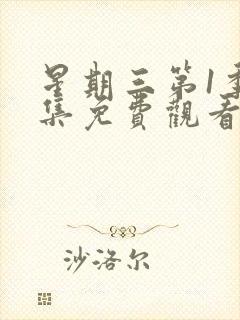 星期三第1季
集免費觀看
沙洛尔